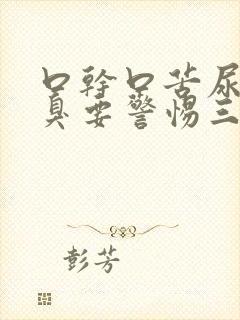 口幹口苦尿
臭要警惕三
彭芳